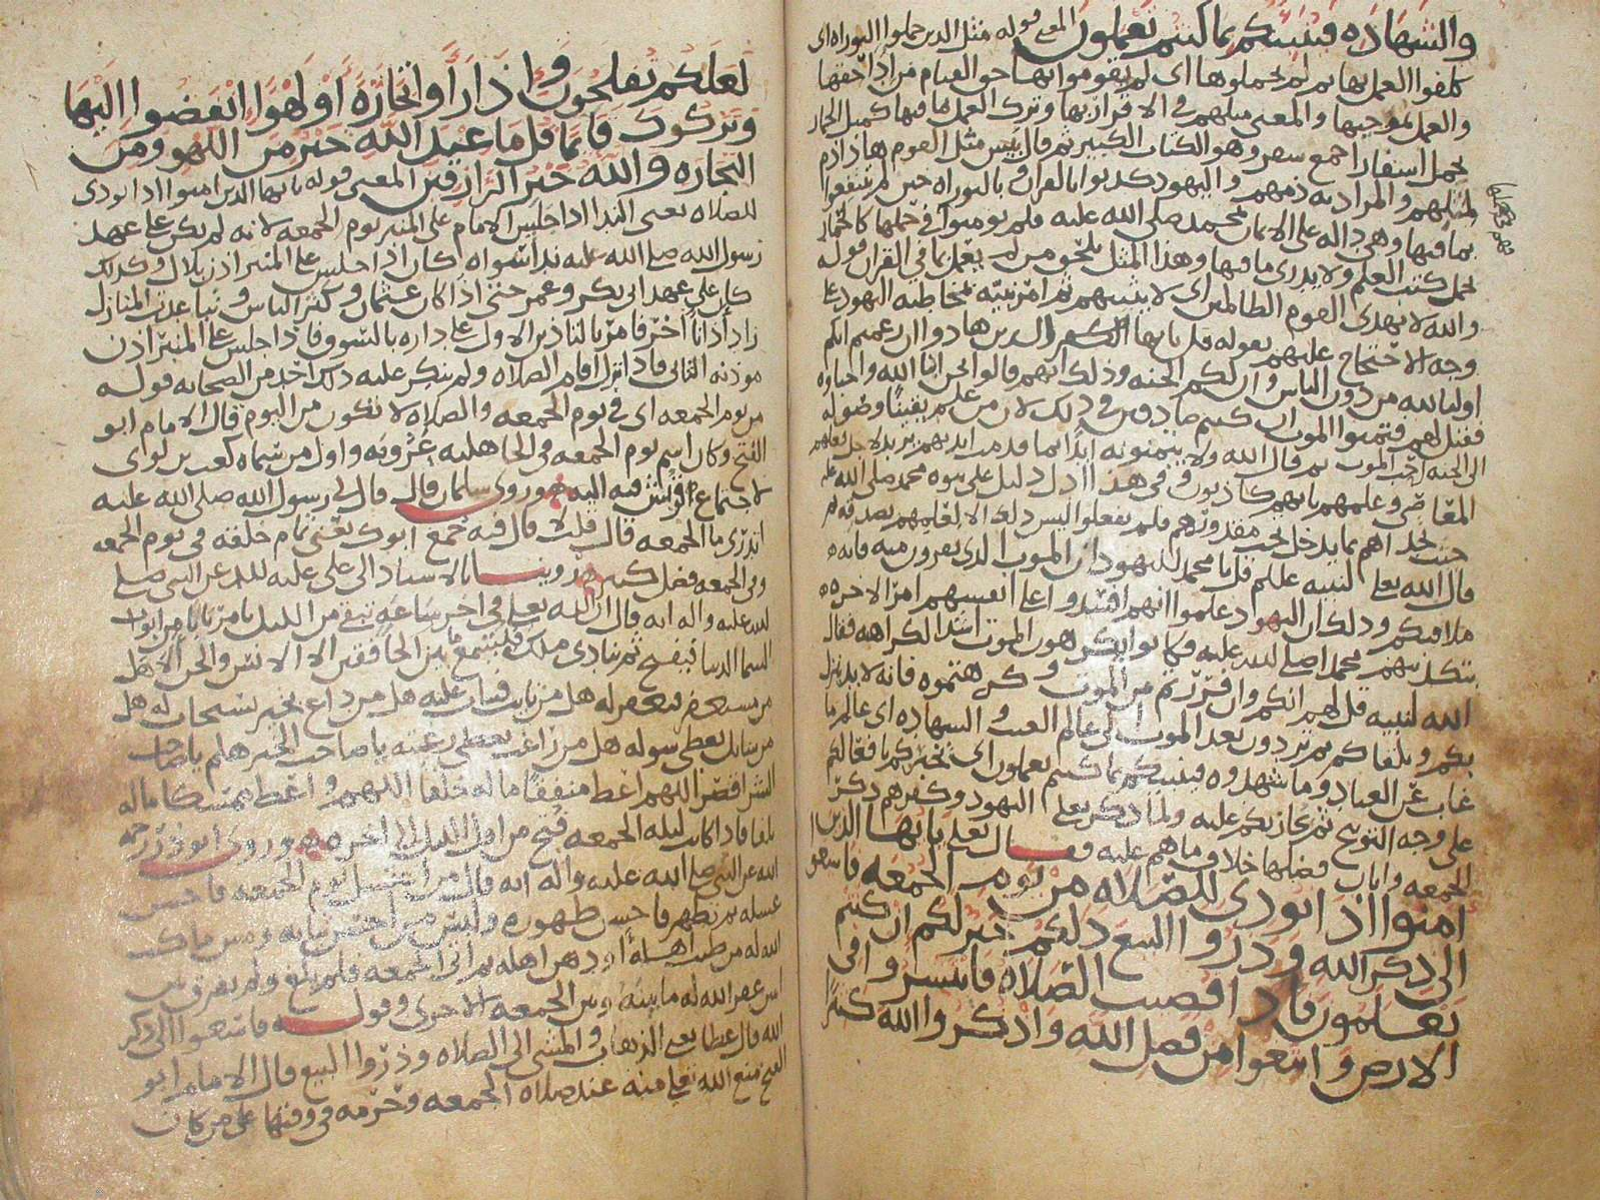 والشهاده فينبئكم بما كنتم تعملون المعنى قوله مثل الذين حملوا التوراه اى
كلفوا العمل بها ثم لم يحملوها اى لم يقوموا بها حق القيام من اداء حقها
والعمل بموجبها والمعنى مثلهم فى الاقرار بها وترك العمل بما فيها كمثل الحمار
يحمل اسفارا جمع سفر وهو الكتاب الكبير ثم قال بئس مثل القوم هذا ذم
لمثلهم والمراد به ذمهم واليهود كذبوا بالقران وبالتوراه حين لم ينتفعوا
بما فيها وهى داله على الايمان بمحمد صلى الله عليه فلم يومنوا فى حملها كالحمار
يحمل كتب العلم ولا يدرى ما فيها وهذا المثل يلحق من لم يعمل بما فى القران قوله
والله لا يهدى القوم الظالمين اى لا يثيبهم ثم امر نبيه بمخاطبة اليهود على
وجه الاحتجاج عليهم بقوله قل يا ايها الذين هادوا ان زعمتم انكم
اوليا لله من دون الناس وان لكم الجنه وذلك انهم قالوا نحن ابنا الله واحباوه
فقيل لهم فتمنوا الموت ان كنتم صادقين فى ذلك لان من علم يقينا وصوله
الى الجنه احب الموت ثم قال الله ولا يتمنونه ابدا بما قدمت ايديهم
المعاصى وعلمهم بانهم كاذبون وفى هذا ادل دليل على نبوه محمد صلى الله عليه
قال الله تعالى لنبيه عليلم قل يا محمد لليهود ان الموت الذى تفرون منه فانه
ملاقيكم وذلك ان اليهود علموا انهم افسدوا على انفسهم امر الاخره
بتكذيبهم محمدا صلى الله عليه فكانوا يكرهون الموت اشد الكراهه فقال
الله لنبيه قل لهم انكم وان فررتم من الموت وكرهتموه فانه لا بد ينزل
بكم ويلقاكم ثم تردون بعد الموت الى عالم الغيب والشهاده اى عالم بما
غاب عن العباد وما شهدوه فينبئكم بما كنتم تعملون اى يخبركم بافعالكم
على وجه التوبيخ ثم يجازيكم عليه ولما ذكر تعلى اليهود وكفرهم ذكر
الجمعه وابان فضلها خلاف ما هم عليه فقال تعلى يا ايها الذين
امنوا اذا نودى للصلاه من يوم الجمعه فاسعو
الى ذكر الله وذروا البيع ذلكم خير لكم ان كنتم
تعلمون فاذا قضيت الصلاه فانتشروا فى
الارض وابتغوا من فضل الله واذكروا الله كثيرا
لعلكم تفلحون واذا راوا تجارة او لهوا انفضوا اليها
وتركوك قائما قل ما عند الله خير من اللهو ومن
التجاره والله خير الرازقين المعنى قوله يا ايها الذين امنوا اذا نودى
للصلاه يعنى الندا اذا جلس الامام على المنبر يوم الجمعه لانه لم يكن على عهد
رسول الله صلى الله عليه ندا سواه كان اذا جلس على المنبر اذن بلال وكذلك
كان على عهد ابى بكر وعمر حتى اذا كان عثمان وكثر الناس وتباعدت المنازل
زاد اذانا اخر فامر بالتاذين الاول على داره بالسوق فاذا جلس على المنبر اذن
موذنه الثانى فاذا نزل اقام الصلاه ولم ينكر عليه ذلك احد من الصحابه قوله
من يوم الجمعه اى فى يوم الجمعه والصلاه لا تكون من اليوم قال الامام ابو
الفتح وكان اسم يوم الجمعه فى الجاهليه عروبه واول من سماه كعب بن لوى
لاجتماع قريش فيه اليه وروى سلمان قال قال لى رسول الله صلى الله عليه
اتدرى ما الجمعه قال قلت لا قال فيه جمع ابوك يعنى تمام خلقه فى يوم الجمعه
وفى الجمعه فضل كثير وروينا بالاسناد الى على عليه للسلم عن النبى صلى
الله عليه واله انه قال ان الله تعلى فى اخر ساعة تبقى من الليل يامر بابا من ابواب
السما الدنيا فيفتح ثم ينادى ملك فيسمع ما بين الخافقين الا الانس والجن الا هل
من مستغفر فيغفر له هل من تايب فيتاب عليه هل من داع بخير يستجاب له هل
من سايل يعطى سوله هل من راغب يعطى رغبته يا صاحب الخير هلم يا صاحب
الشر اقصر اللهم اعط منفقا ماله خلفا اللهم واعط ممسكا ماله
تلفا فاذا كانت ليله الجمعه فتح من اول الليل الى اخره وروى ابو ذر رحمه
الله عن النبى صلى الله عليه واله انه قال من اغتسل يوم الجمعه فاحسن
غسله ثم تطهر فاحسن طهوره ولبس من احسن ثيابه ومس ما كتب
الله له من طيب اهله او دهن اهله ثم اتى الجمعه فلم يلغ ولم يفرق بين
اثنين غفر الله له ما بينه وبين الجمعه الاخرى وقوله فاسعوا الى ذكر
الله قال عطا يعنى الذهاب والمشى الى الصلاه وذروا البيع قال الامام ابو
الفتح منع الله تعلى منه عند صلاه الجمعه وحرمه فى وقتها على من كان